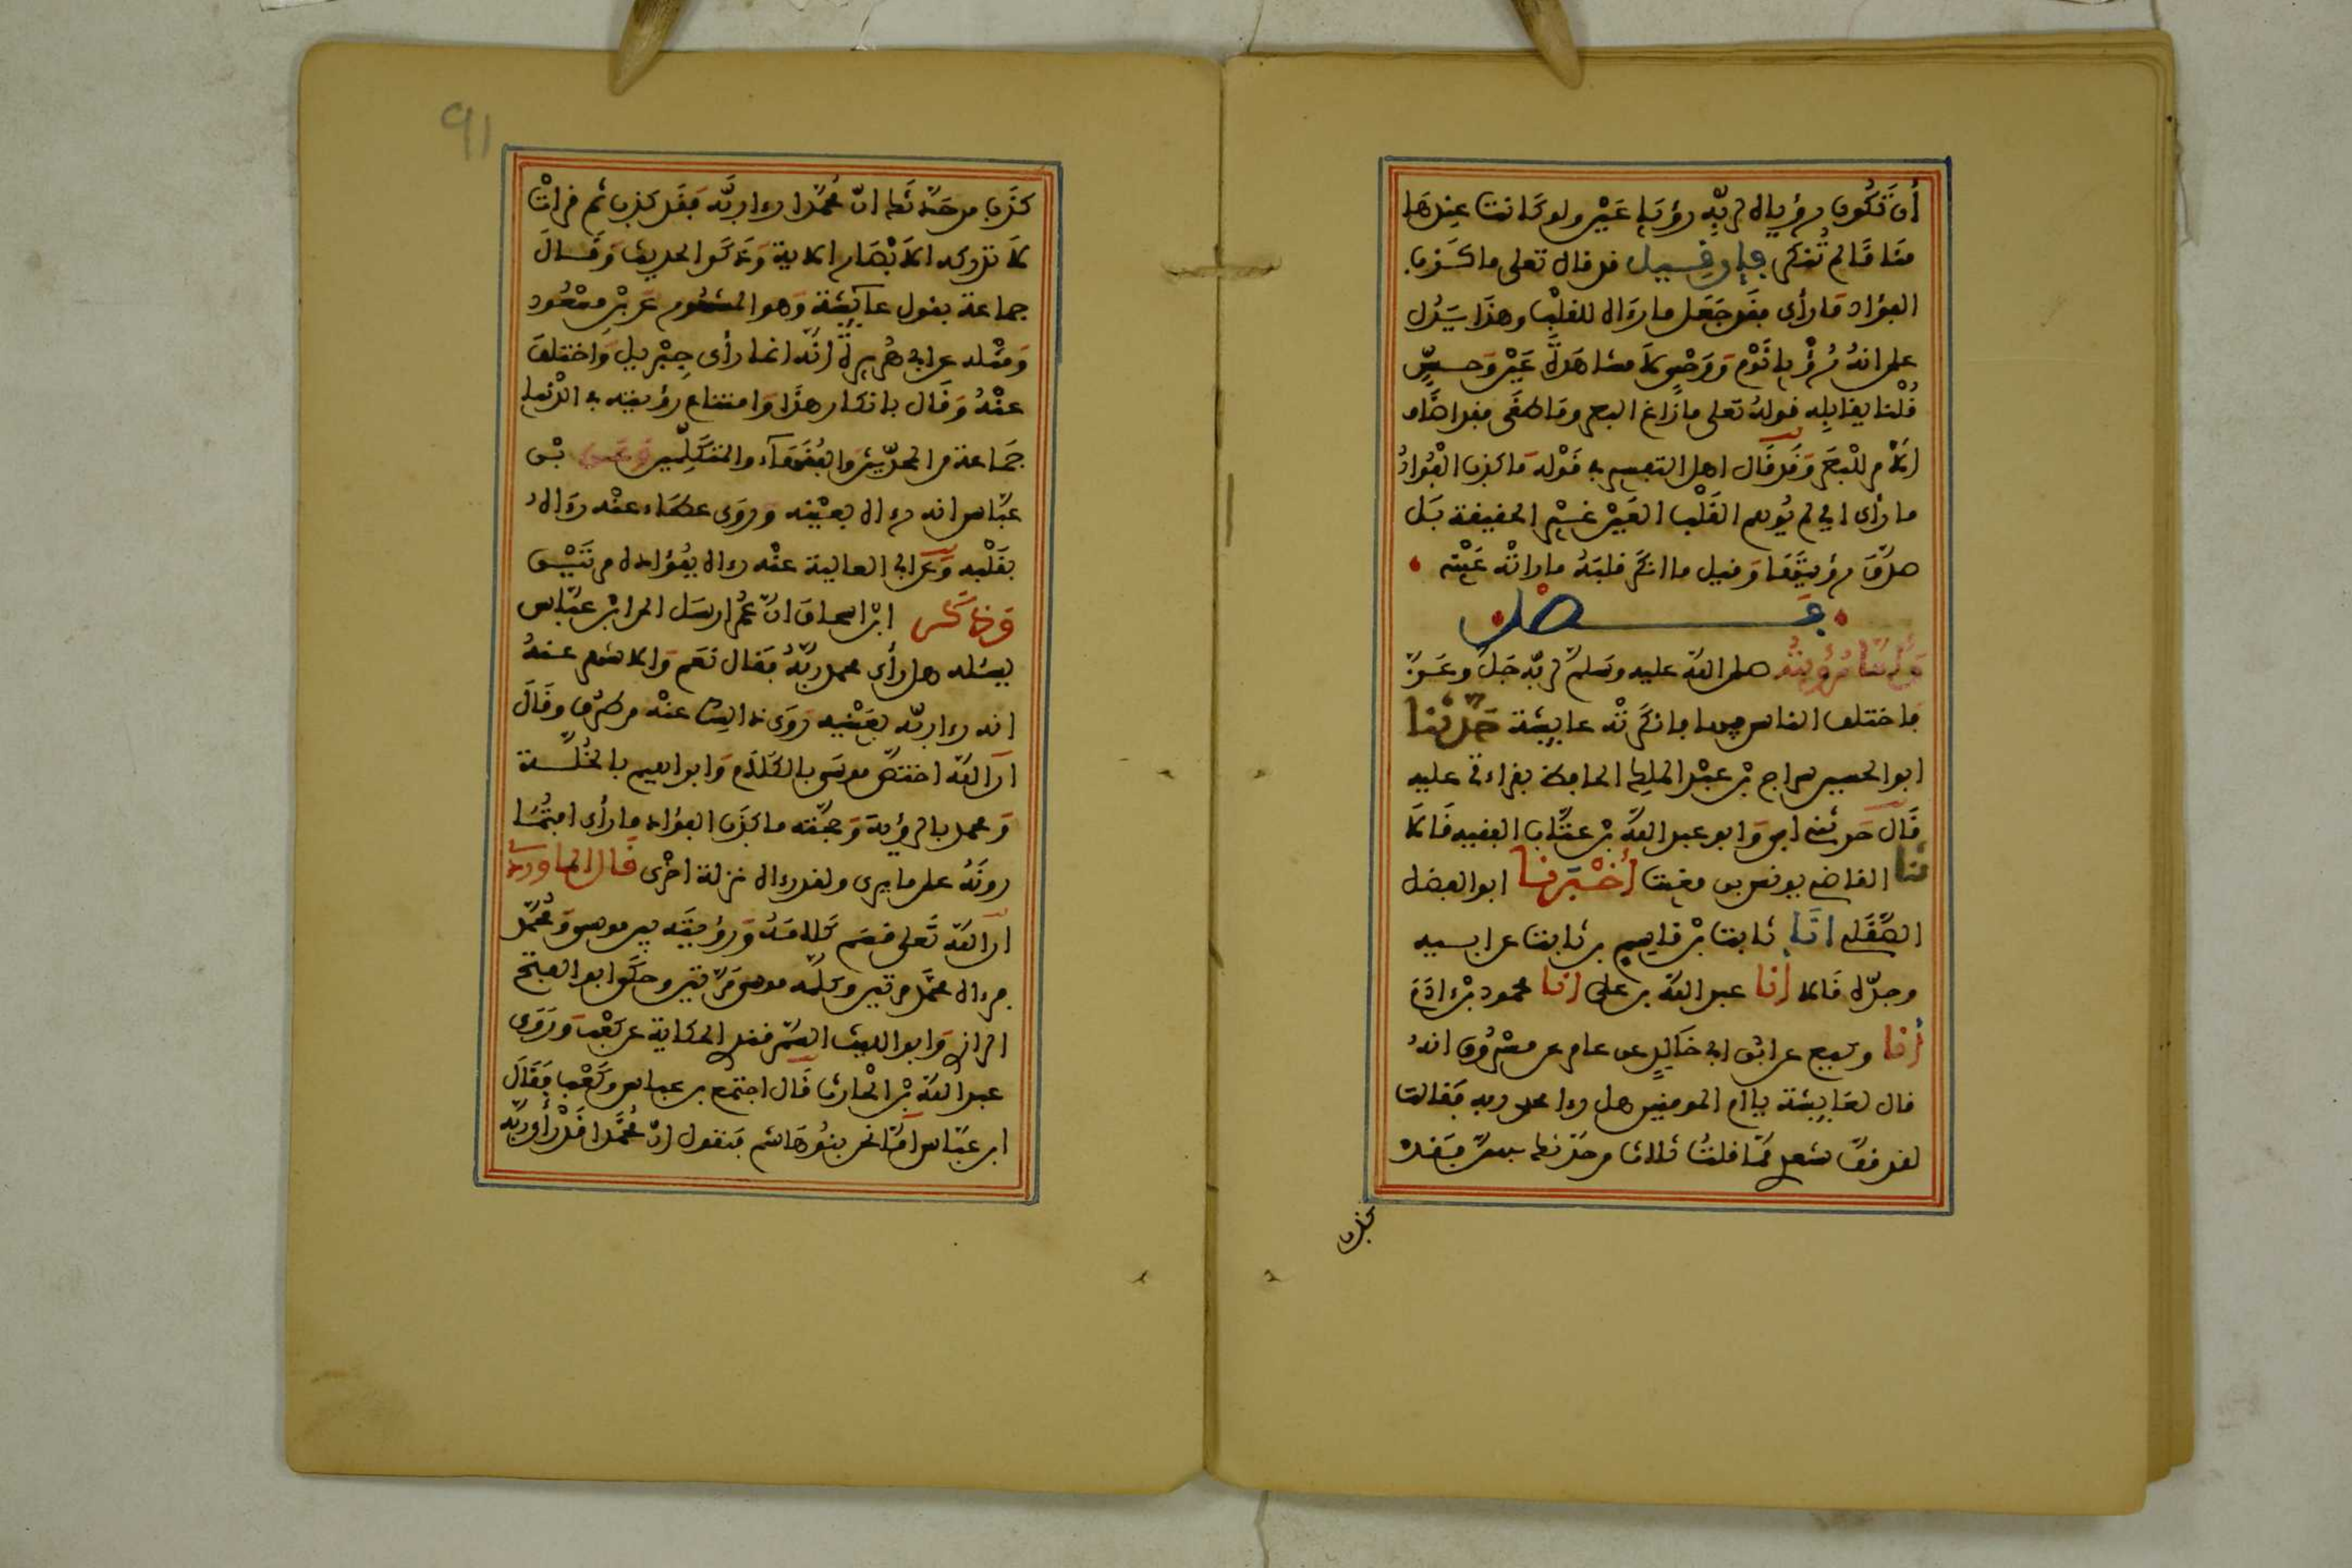 أن تكون رؤياه لربه رؤيا عين ولو كانت عندها
مناما لم تنكره فإن قيل قد قال تعلى ما كذب
الفؤاد ما رأى فقد جعل ما رءاه للقلب وهذا يدل
على انه رؤيا نوم ووحي لا مشاهدة عين وحس
قلنا يقابله قوله تعلى ما زاغ البصر وما طغى فقد اضاف
الامر للبصر وقد قال اهل التفسير في قوله ما كذب الفؤاد
ما رأى اي لم يوهم القلب العين غير الحقيقة بل
صدق رؤيتها وقيل ما انكر قلبه ما راته عينه
فصل
وأما رؤيته صلى الله عليه وسلم لربه جل وعز
فاختلف الناس فيها فانكرته عايشة حدثنا
ابو الحسين سراج بن عبد الملك الحافظ بقراءتي عليه
قال حدثني ابي وابو عبد الله بن عتاب الفقيه قالا
ثنا القاضي يونس بن مغيث أخبرنا ابو الفضل
الصقلي انا ثابت بن قاسم بن ثابت عن ابيه
وجده قالا أنا عبد الله بن علي انا محمود بن ءادم
أنا وكيع عن ابن ابي خالد عن عامر عن مسروق انه
قال لعايشة يا ام المومنين هل رءا محمد ربه فقالت
لقد قف شعري مما قلت ثلاث من حدثك بهن فقد
كذب
91
كذب من حدثك ان محمدا رءا ربه فقد كذب ثم قرات
لا تدركه الابصار الاية وذكر الحديث وقال
جماعة بقول عايشة وهو المشهور عن بن مسعود
ومثله عن ابي هريرة انه انما رأى جبريل واختلف
عنه وقال بانكار هذا وامتناع رؤيته في الدنيا
جماعة من المحدثين والفقهاء والمتكلمين وعن بن
عباس انه رءاه بعينه وروى عطاء عنه رءاه
بقلبه وعن ابي العالية عنه رءاه بفؤاده مرتين
وذكر ابن اسحاق ان بن عمر ارسل الى ابن عباس
يسئله هل رأى محمد ربه فقال نعم والاشهر عنه
انه رءا ربه بعينه روى ذالك عنه من طرق وقال
ان الله اختص موسى بالكلام وابراهيم بالخلة
ومحمد بالرؤية وحجته ما كذب الفؤاد ما رأى افتما
رونه على ما يرى ولقد رءاه نزلة اخرى قال الماوردي
ان الله تعلى قسم كلامه ورؤيته بين موسى ومحمد
فرءاه محمد مرتين وكلمه موسى مرتين وحكى ابو الفتح
الرازي وابو الليث السمرقندي الحكاية عن كعب وروى
عبد الله بن الحارث قال اجتمع بن عباس وكعب فقال
ابن عباس اما نحن بنو هاشم فنقول ان محمدا قد رأى ربه